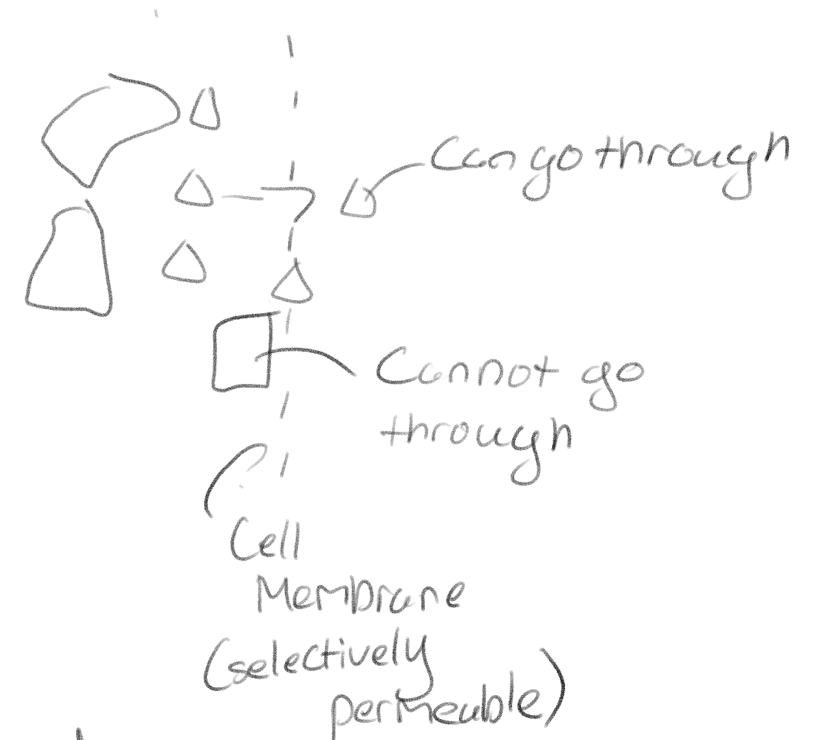 Can go through
Cannot go
through
Cell
Membrane
(selectively
permeable)